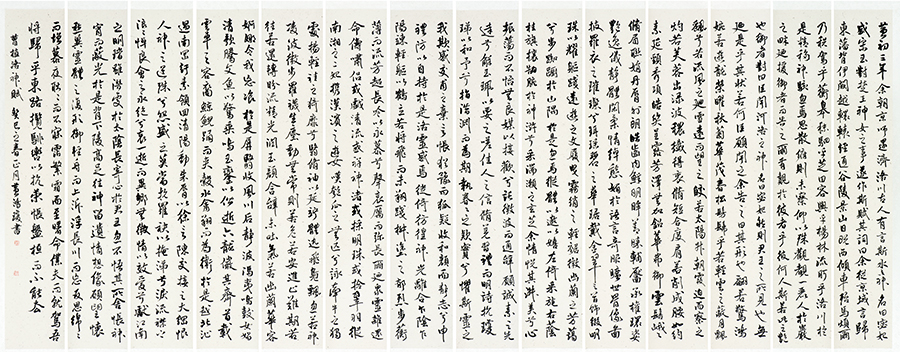 黃初三年余朝京師還濟洛川古人有言斯水之神名曰宓妃
感宋玉對楚王神女之事遂作斯賦其詞曰余從京域言歸
東藩背伊闕越轘轅經通谷陵景山日既西傾車殆馬煩爾
乃稅駕乎蘅皋秣駟乎芝田容與乎楊林流眄乎洛川於
是精移神駭忽焉思散俯則未察仰以殊觀睹一麗人于巖
之畔迺援御者而告之曰爾有覿於彼者乎彼何人斯若此之艷
也御者對曰臣聞河洛之神名曰宓妃然則君王之所見也毋
迺是乎其狀若何臣願聞之余告之曰其形也翩若驚鴻
婉若游龍榮曜秋菊華茂春松髣髴兮若輕雲之蔽月飄
颻兮若流風之迴雪遠而望之皎若太陽升朝霞迫而察之
灼若芙蓉出淥波穠纖得衷修短合度肩若削成腰如約
素延頸秀項皓質呈露芳澤無加鉛華弗御雲髻峨峨
修眉聯娟丹脣外朗皓齒內鮮明眸善睞靨輔承權瓌姿
艷逸儀靜體閑柔情綽態媚於語言奇服曠世骨像應圖
披羅衣之璀璨兮珥瑤碧之華琚戴金翠之首飾綴明
珠以耀軀踐遠遊之文履曳霧綃之輕裾微幽蘭之芳藹
兮步踟躕於山隅於是忽焉縱體以遨以嬉左倚采旄右蔭
桂旗攘皓腕於神滸兮采湍瀨之玄芝余情悅其淑美兮心
振蕩而不怡無良媒以接歡兮託微波而通辭願誠素之先
達兮解玉珮以要之嗟佳人之信修羌習禮而明詩抗瓊
珶以和予兮指潛淵而為期執眷眷之款實兮懼斯靈之
我欺感交甫之棄言兮悵猶豫而狐疑收和顏而靜志兮申
禮防以自持於是洛靈感焉徙倚彷徨神光離合乍陰乍
陽竦輕軀以鶴立若將飛而未翔踐椒塗之郁烈步蘅
薄而流芳超長吟以永慕兮聲哀厲而彌長爾迺衆靈雜遝
命儔嘯侶或戲清流或翔神渚或採明珠或拾翠羽從
南湘之二妃攜漢濱之游女嘆匏瓜之無匹兮詠牽牛之獨
處揚輕袿之猗靡兮翳修袖以延佇體迅飛鳧飄忽若神
凌波微步羅襪生塵動無常則若危若安進止難期若
往若還轉眄流精光潤玉顏含辭未吐氣若幽蘭華容
婀娜令我忘湌於是屏翳收風川后靜波馮夷鳴鼓女媧
清歌騰文魚以警乘鳴玉鸞以偕逝六龍儼其齊首載
雲車之容裔鯨鯢踴而夾轂水禽翔而為衛於是越北沚
過南岡紆素領迴清陽動朱脣以徐言陳交接之大綱恨
人神之道殊兮怨盛年之莫當抗羅袂以掩涕兮淚流襟之
浪浪悼良會之永絕兮哀一逝而異鄉無微情以效愛兮獻江南
之明璫雖潛處於太陰長寄心於君王忽不悟其所舍悵神
宵而蔽光於是背下陵高足往神留遺情想像顧望懷
愁冀靈體之復形御輕舟而上泝浮長川而忘反思綿綿
而增慕夜耿耿而不寐霑繁霜而至曙命僕夫而就駕吾
將歸乎東路攬騑轡以抗策悵盤桓而不能去
曹植洛神賦 癸巳 正月 書